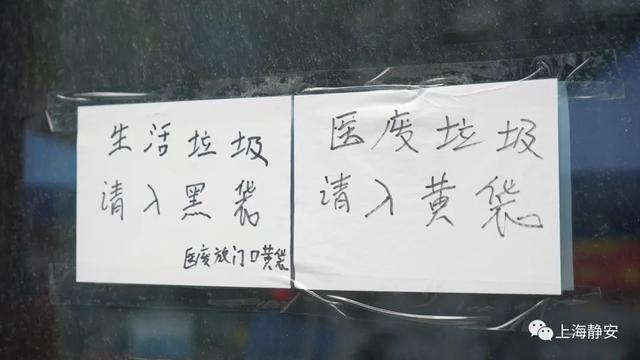 生活垃圾
请入黑袋
医废放门口黄袋
医废垃圾
请入黄袋
上海静安